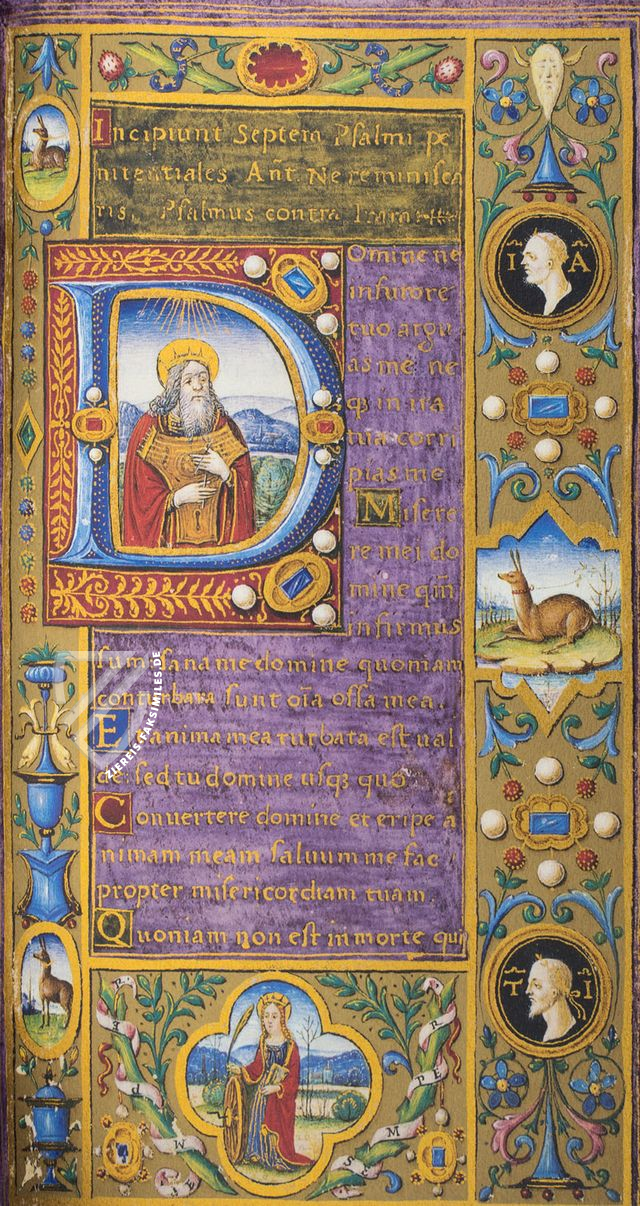 SEMPER
Incipiunt Septem Psalmi pe
nitentiales Añt. Ne reminisca
ris. Psalmus contra Iram
I A
Domine ne
in furore
tuo argu
as me ne
q3 in ira
tua corri
pias me
Misere
re mei do
mine qm̃
infirmus
sum sana me domine quoniam
conturbata sunt oĩa ossa mea.
Et anima mea turbata est val
de: sed tu domine usq3 quo
Convertere domine et eripe a
nimam meam salvum me fac
propter misericordiam tuam.
Quoniam non est in morte qui
T I
ZIEREIS-FAKSIMILES.DE